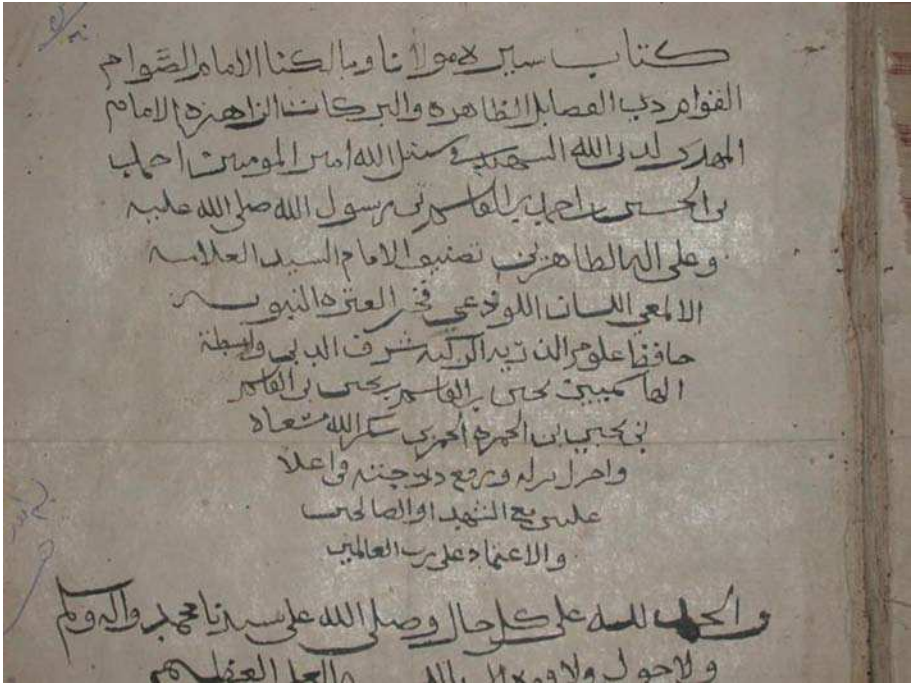 كتاب سيره مولانا ومالكنا الامام الصَّوام
القوام ذي الفضايل الظاهره والبركات الزاهره الامام
المهدي لدين الله الشهيد في سبيل الله امير المومنين احمد
بن الحسين بن احمد بن القاسم بن رسول الله صلى الله عليه
وعلى اله الطاهرين تصنيف الامام السيد العلامه
الالمعي اللسان اللوذعي فخر العتره النبويه
حافظ علوم الذريه الزكيه شرف الدين واسطة
الهاشميين يحيى بن القاسم بن يحيى بن القاسم
بن يحيى بن الحمزه الحمزي شكر الله مسعاه
واجزل نزله ورفع درجته في اعلا
عليين مع الشهدا والصالحين
والاعتماد على رب العالمين
والحمد لله على كل حال وصلى الله على سيدنا محمد واله وسلم
ولا حول ولا قوه الا بالله العلي العظيم